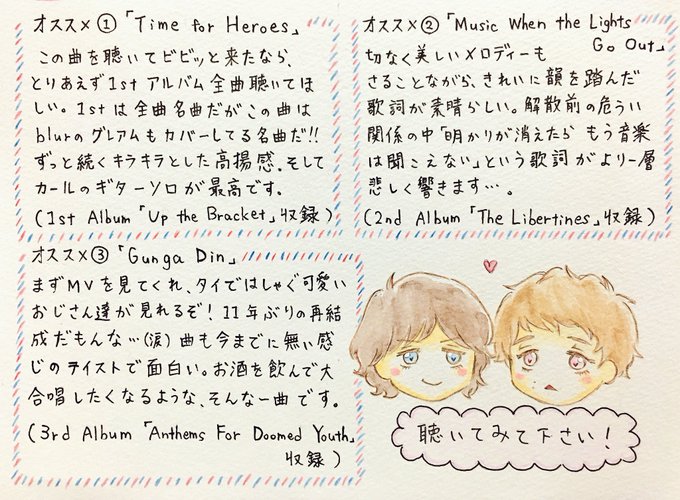 オススメ①「Time for Heroes」
この曲を聴いてビビッと来たなら、
とりあえず1stアルバム全曲聴いてほ
しい。1stは全曲名曲だがこの曲は
blurのグレアムもカバーしてる名曲だ!!
ずっと続くキラキラとした高揚感、そして
カールのギターソロが最高です。
(1st Album「Up the Bracket」収録)
オススメ②「Music When the Lights
Go Out」
切なく美しいメロディーも
さることながら、きれいに韻を踏んだ
歌詞が素晴らしい。解散前の危うい
関係の中「明かりが消えたら もう音楽
は聞こえない」という歌詞がより一層
悲しく響きます…。
(2nd Album「The Libertines」収録)
オススメ③「Gunga Din」
まずMVを見てくれ、タイではしゃぐ可愛い
おじさん達が見れるぞ!11年ぶりの再結
成だもんな…(涙)曲も今までに無い感
じのテイストで面白い。お酒を飲んで大
合唱したくなるような、そんな一曲です。
(3rd Album「Anthems For Doomed Youth」
収録)
聴いてみて下さい!